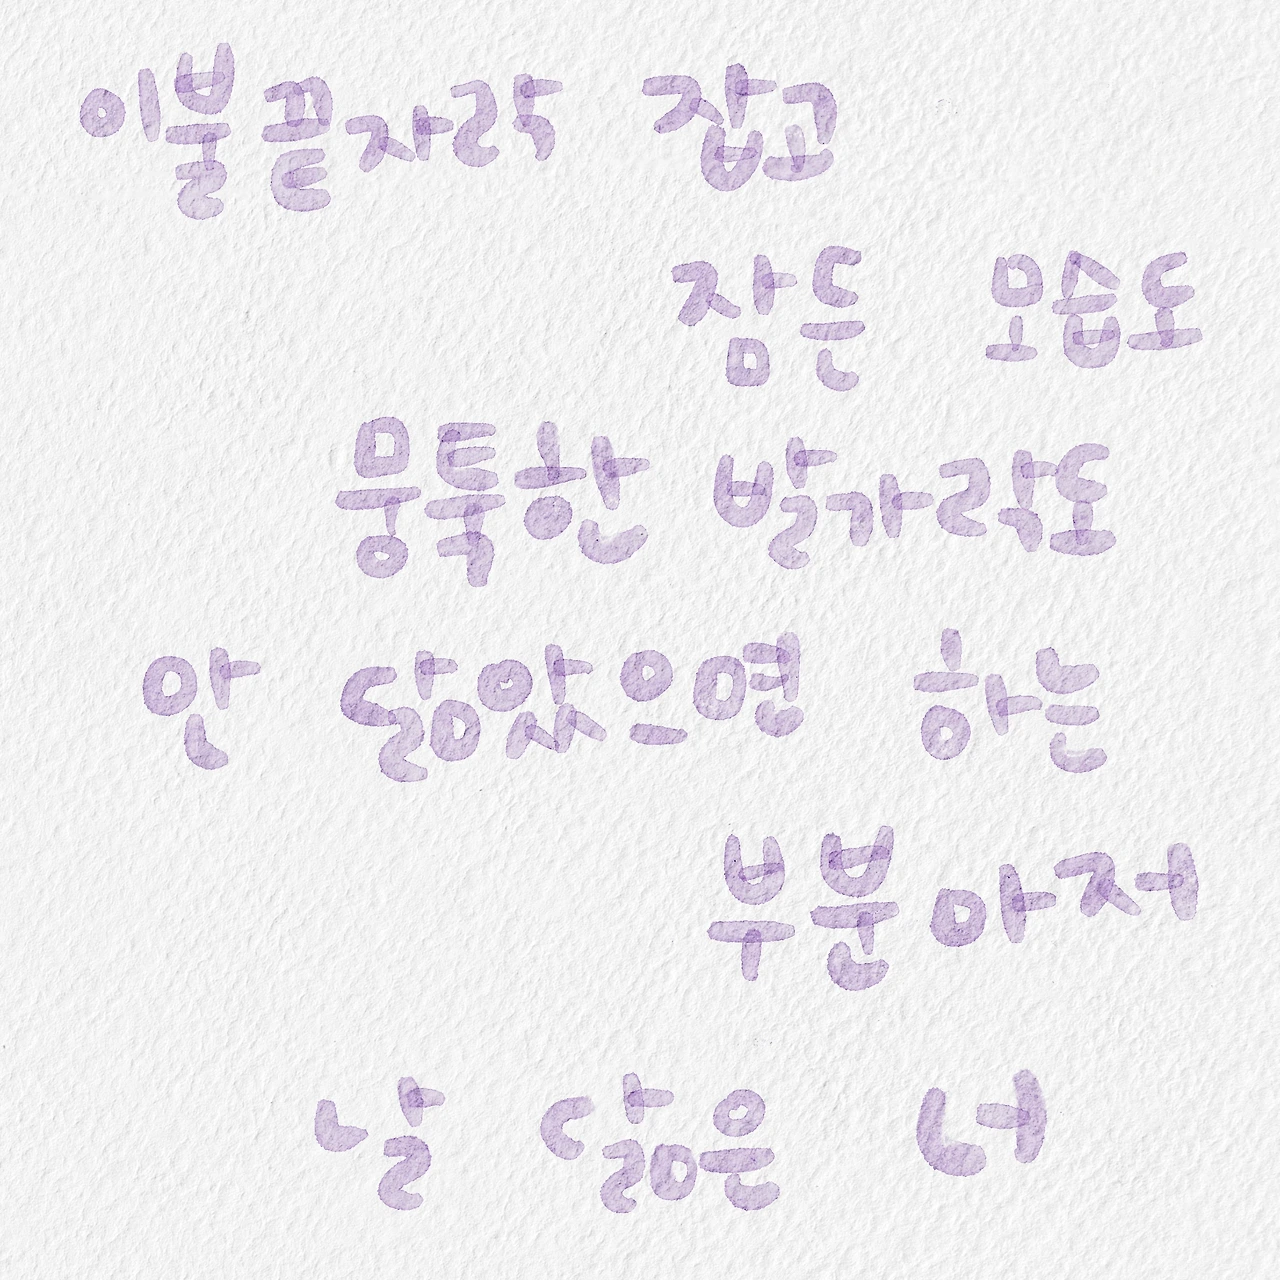 이불끝자락 잡고
잠든 모습도
뭉툭한 발가락도
안 닮았으면 하는
부분아저
날 닮은 너